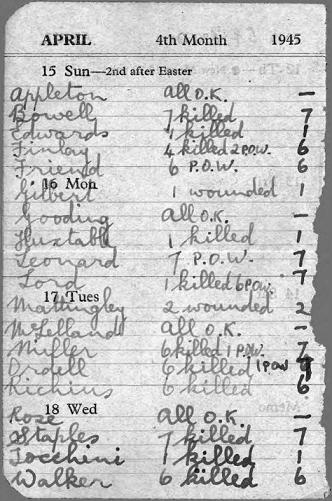 APRIL 4th Month 1945
15 Sun—2nd after Easter
Appleton all O.K. —
Bowell 7 killed 7
Edwards 1 killed 1
Finlay 4 killed 2 P.O.W. 6
Friend 6 P.O.W. 6
16 Mon
Gilbert 1 wounded 1
Gooding all O.K. —
Huxtable 1 killed 1
Leonard 7 P.O.W. 7
Lord 1 killed 6 P.O.W. 7
17 Tues
Mattingley 2 wounded 2
McLelland all O.K. —
Miller 6 killed 1 P.O.W. 7
Ordell 6 killed 1 POW
6 killed 6
18 Wed
Rose all O.K. —
Staples 7 killed 7
Tocchini 1 killed 1
Walker 6 killed 6